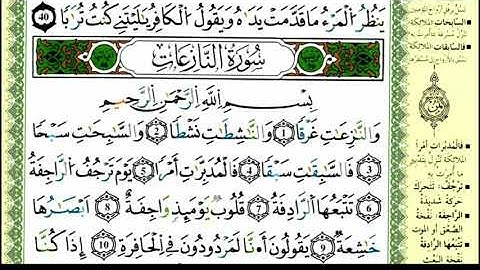 يَنظُرُ ٱلْمَرْءُ مَا قَدَّمَتْ يَدَاهُ وَيَقُولُ ٱلْكَافِرُ يَٰلَيْتَنِي كُنتُ تُرَٰبًا 40
سُورَةُ النَّازِعَاتِ
بِسْمِ اللَّهِ الرَّحْمَٰنِ الرَّحِيمِ
وَٱلنَّٰزِعَٰتِ غَرْقًا 1 وَٱلنَّٰشِطَٰتِ نَشْطًا 2 وَٱلسَّٰبِحَٰتِ سَبْحًا
3 فَٱلسَّٰبِقَٰتِ سَبْقًا 4 فَٱلْمُدَبِّرَٰتِ أَمْرًا 5 يَوْمَ تَرْجُفُ ٱلرَّاجِفَةُ
6 تَتْبَعُهَا ٱلرَّادِفَةُ 7 قُلُوبٌ يَوْمَئِذٍ وَاجِفَةٌ 8 أَبْصَٰرُهَا
خَٰشِعَةٌ 9 يَقُولُونَ أَءِنَّا لَمَرْدُودُونَ فِي ٱلْحَافِرَةِ 10 إِذَا كُنَّا
السَّابِحَاتِ
فَالسَّابِقَاتِ
فَالْمُدَبِّرَاتِ أَمْرًا
تَرْجُفُ: تَتَحَرَّكُ
حَرَكَةً شَدِيدَةً
الرَّاجِفَةُ: نَفْخَةُ
الصَّعْقِ أَوِ الْمَوْتِ
تَتْبَعُهَا الرَّادِفَةُ
نَفْخَةُ الْبَعْثِ